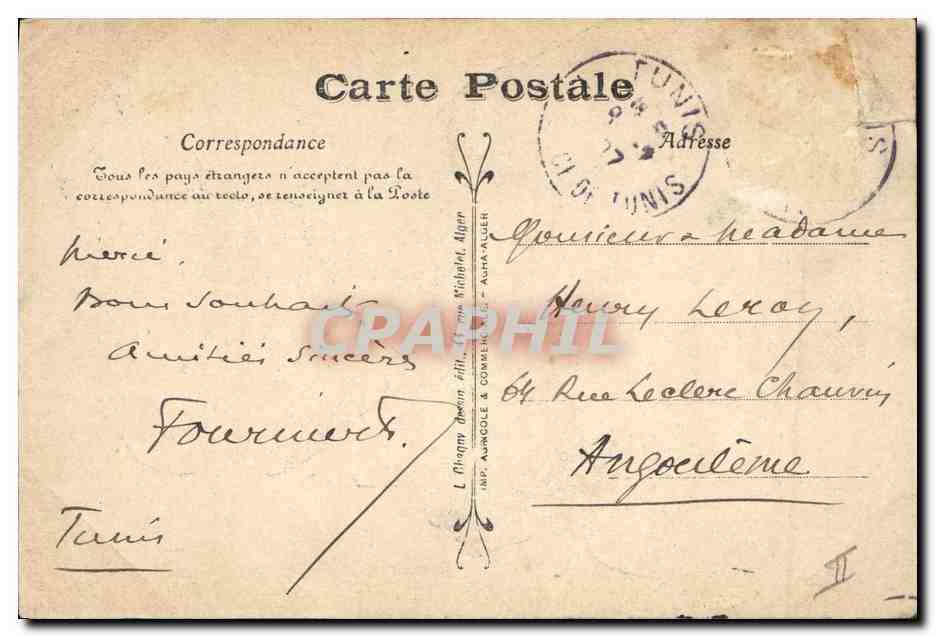 Carte Postale
Correspondance
Tous les pays étrangers n'acceptent pas la
correspondance au recto, se renseigner à la Poste
Adresse
TUNIS
TUNIS
IS
Merci.
Bons souhaits
Amitiés sincères
Tunis
L. Chagny dessin. édit., rue Michelet, Alger
IMP. AGRICOLE & COMMERCIALE. - AGHA-ALGER
Monsieur & Madame
Henry Leroy,
64 Rue Leclerc Chauvin
Angoulême
II
CPARPHIL